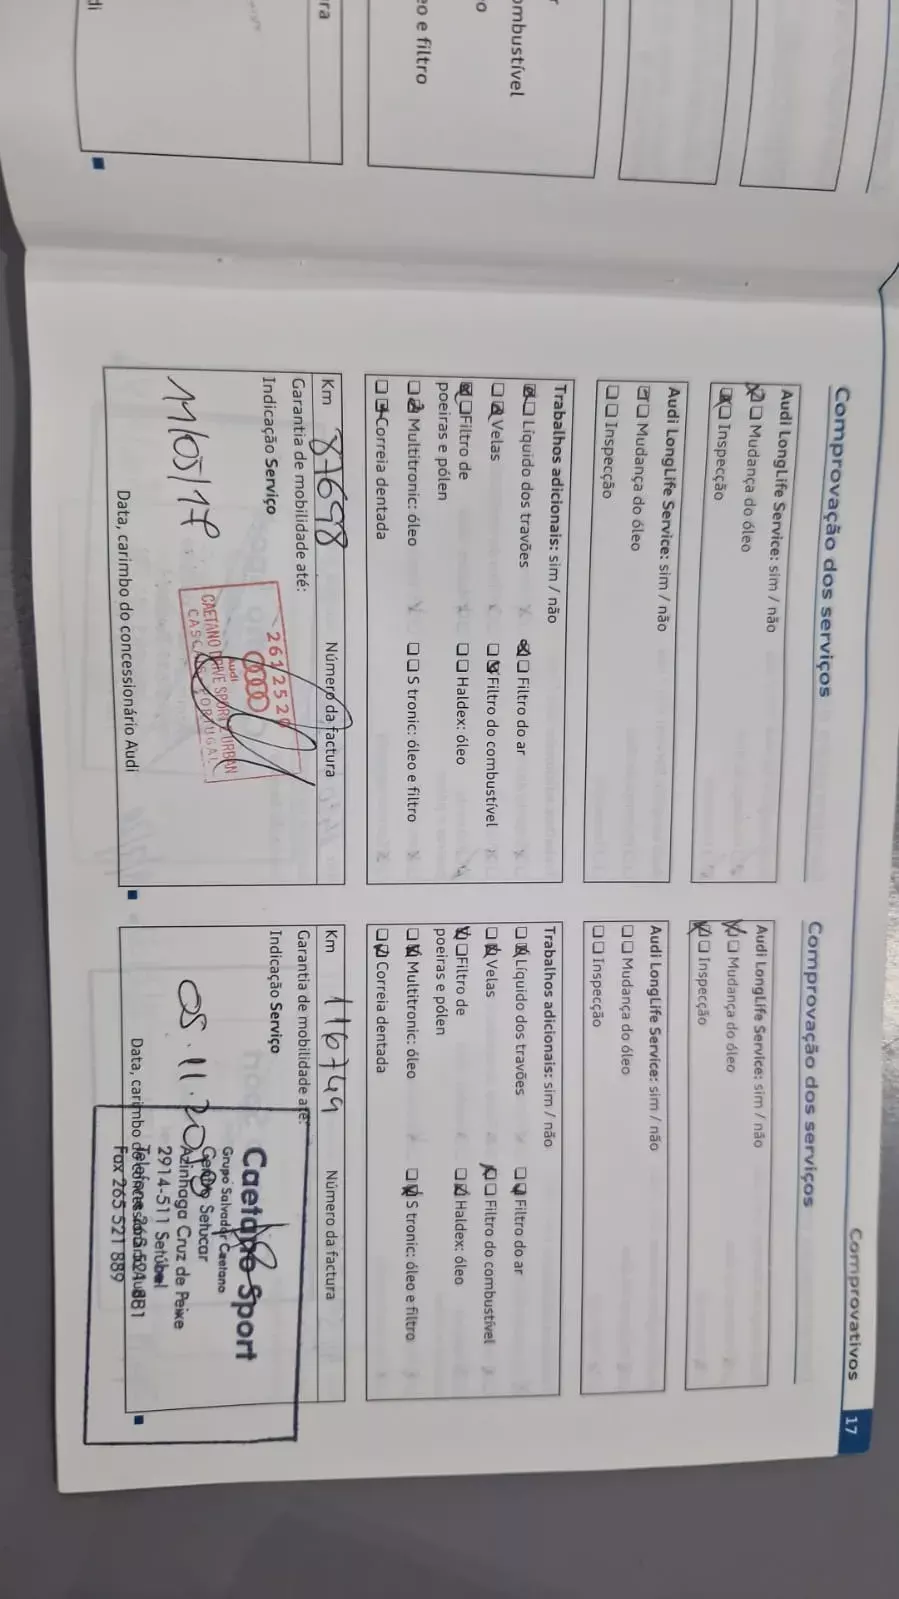 ombustível
eo e filtro
Comprovativos 17
Comprovação dos serviços
Audi LongLife Service: sim / não
Mudança do óleo
Inspecção
Audi LongLife Service: sim / não
Mudança do óleo
Inspecção
Trabalhos adicionais: sim / não
Líquido dos travões
Filtro do ar
Velas
Filtro do combustível
Filtro de
poeiras e pólen
Haldex: óleo
Multitronic: óleo
S tronic: óleo e filtro
Correia dentada
Km 87698 Número da factura
Garantia de mobilidade até:
Indicação Serviço
11/05/17
2612520
Audi
CAETANO DRIVE SPORT URBAN
CASCAIS PORTUGAL
Data, carimbo do concessionário Audi
Comprovação dos serviços
Audi LongLife Service: sim / não
Mudança do óleo
Inspecção
Audi LongLife Service: sim / não
Mudança do óleo
Inspecção
Trabalhos adicionais: sim / não
Líquido dos travões
Filtro do ar
Velas
Filtro do combustível
Filtro de
poeiras e pólen
Haldex: óleo
Multitronic: óleo
S tronic: óleo e filtro
Correia dentada
Km 116749 Número da factura
Garantia de mobilidade até:
Indicação Serviço
Caetano Sport
Grupo Salvador Caetano
Setucar
Azinhaga Cruz de Peixe
2914-511 Setúbal
Fax 265 521 889
Data, carimbo